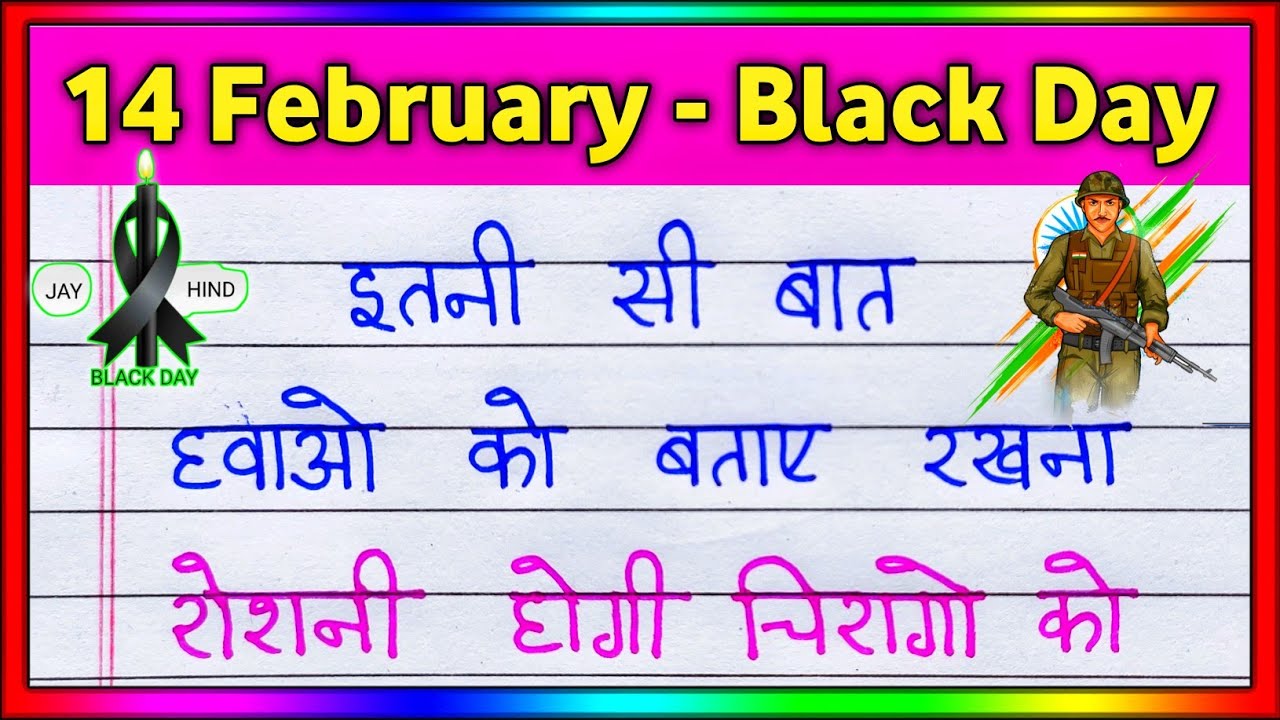 14 February - Black Day
JAY HIND
BLACK DAY
इतनी सी बात
हवाओ को बताए रखना
रोशनी होगी चिरागो को